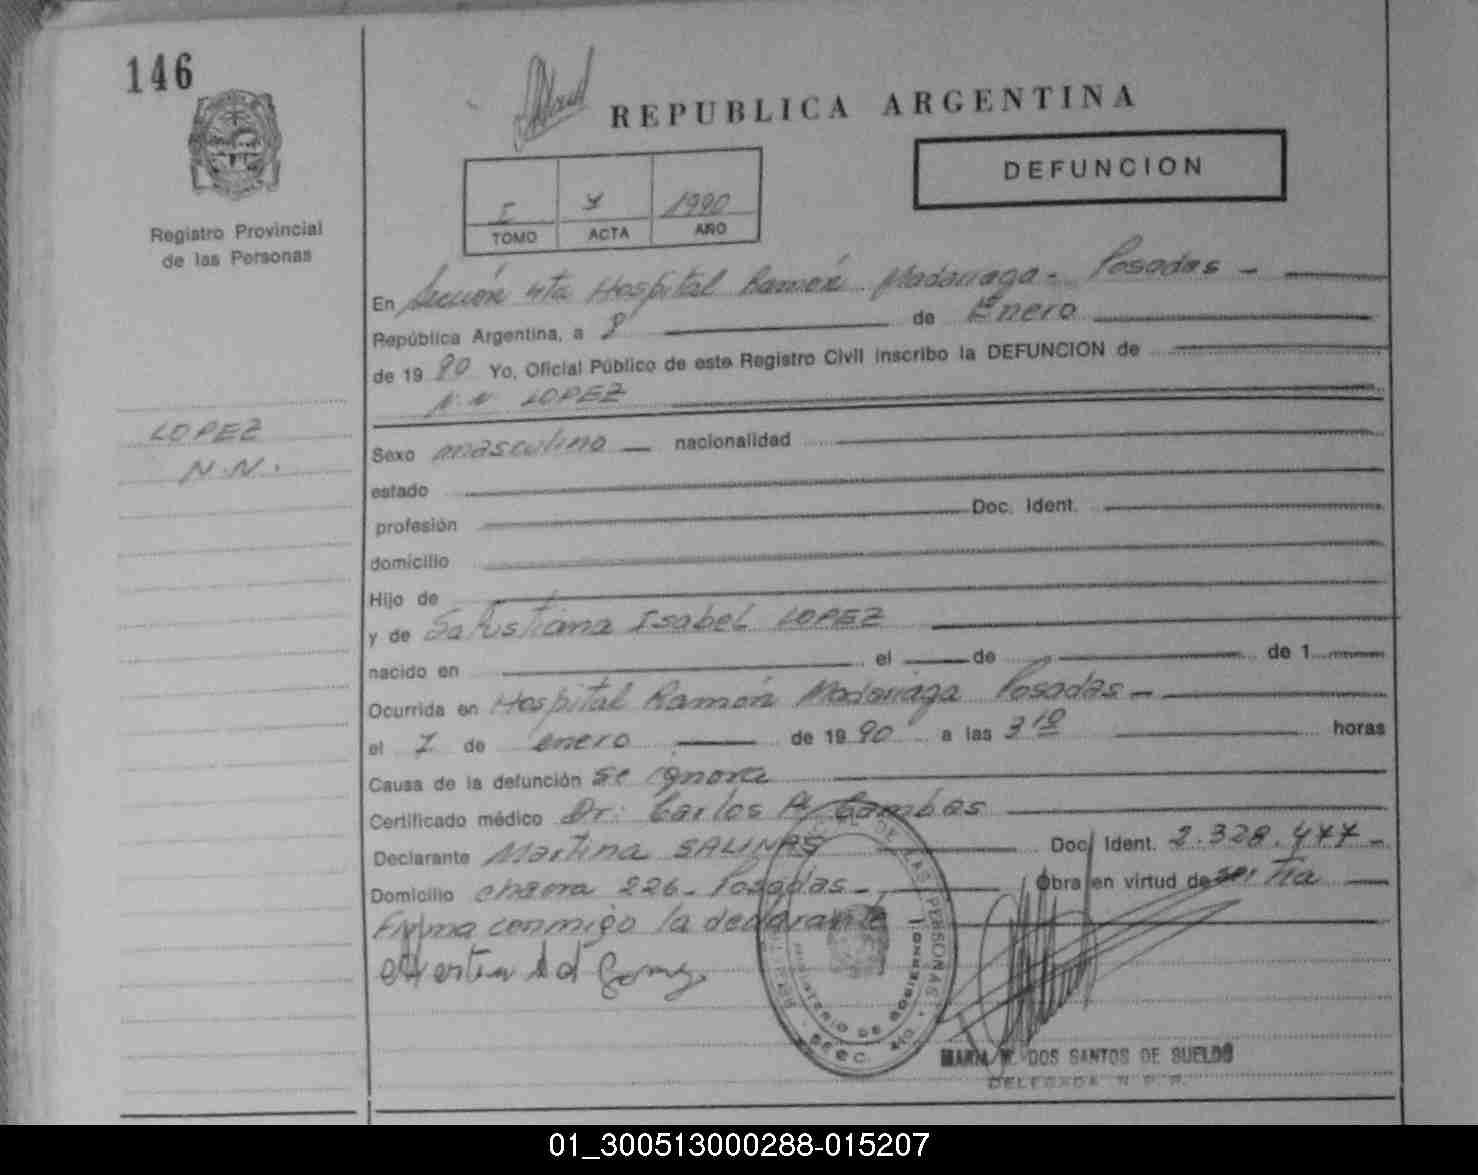 146
REPUBLICA ARGENTINA
DEFUNCION
I 1990
TOMO ACTA AÑO
Registro Provincial
de las Personas
En Sección 4ta Hospital Ramón Madariaga - Posadas -
República Argentina, a 8 de Enero
de 19 90 Yo, Oficial Público de este Registro Civil inscribo la DEFUNCION de
N.N LOPEZ
LOPEZ
N.N.
Sexo masculino nacionalidad
estado
profesión Doc. Ident.
domicilio
Hijo de
y de Salustiana Isabel LOPEZ
nacido en el de de 1
Ocurrida en Hospital Ramón Madariaga Posadas -
el 7 de enero de 19 90 a las 3 10 horas
Causa de la defunción se ignora
Certificado médico Dr: Carlos Gambas
Declarante Martina SALINAS Doc. Ident. 2.328.477 -
Domicilio chacra 226 - Posadas - Obra en virtud de ser tia
Firma conmigo la declarante
REG. DE LAS PERSONAS
MINISTERIO DE GOBIERNO
SECC. 4ta.
MARIA DOS SANTOS DE SUELDO
DELEGADA R. P. P.
01_300513000288-015207